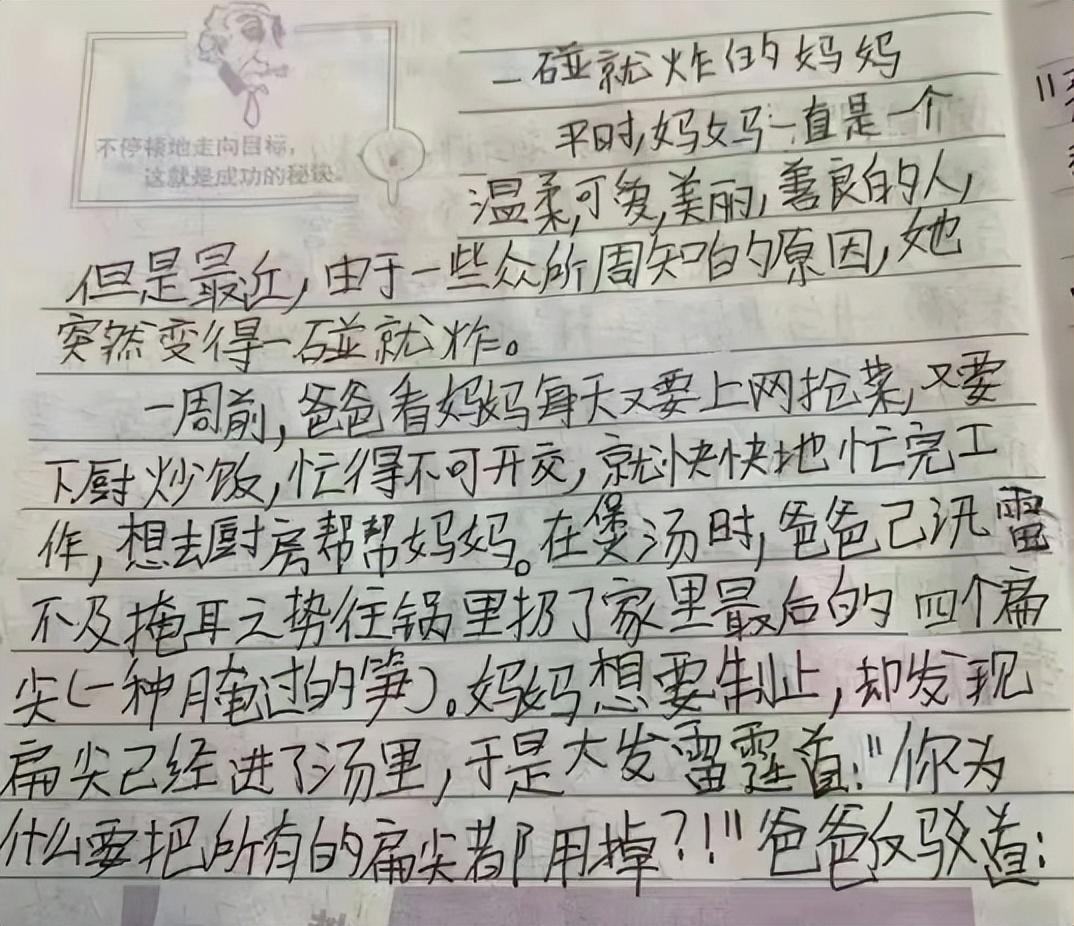 一碰就炸的妈妈
不停顿地走向目标，
这就是成功的秘诀。
平时，妈妈一直是一个
温柔，可爱，美丽，善良的人，
但是最近，由于一些众所周知的原因，她
突然变得一碰就炸。
一周前，爸爸看妈妈每天又要上网抢菜，又要
下厨炒饭，忙得不可开交，就快快地忙完工
作，想去厨房帮帮妈妈。在煲汤时，爸爸已迅雷
不及掩耳之势往锅里扔了家里最后的四个扁
尖（一种腌过的笋）。妈妈想要制止，却发现
扁尖已经进了汤里，于是大发雷霆道："你为
什么要把所有的扁尖都用掉？！"爸爸反驳道：